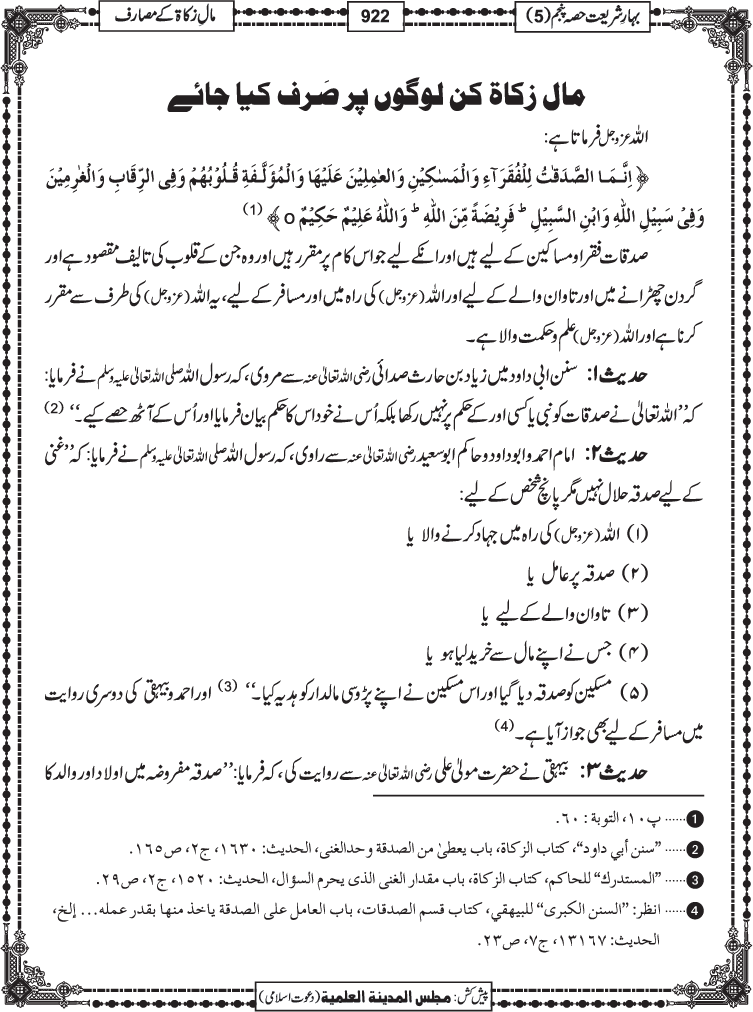 بہارِ شریعت حصہ پنجم (5)
922
مالِ زکاۃ کے مصارف
مال زکاۃ کن لوگوں پر صَرف کیا جائے
اللہ عزوجل فرماتا ہے:
﴿ اِنَّمَا الصَّدَقٰتُ لِلْفُقَرَآءِ وَالْمَسٰکِیْنِ وَالْعٰمِلِیْنَ عَلَیْھَا وَالْمُؤَلَّفَۃِ قُلُوْبُھُمْ وَفِی الرِّقَابِ وَالْغٰرِمِیْنَ
وَفِیْ سَبِیْلِ اللّٰہِ وَابْنِ السَّبِیْلِ ؕ فَرِیْضَۃً مِّنَ اللّٰہِ ؕ وَاللّٰہُ عَلِیْمٌ حَکِیْمٌ o ﴾ (1)
صدقات فقرا و مساکین کے لیے ہیں اور انکے لیے جو اس کام پر مقرر ہیں اور وہ جن کے قلوب کی تالیف مقصود ہے اور
گردن چھڑانے میں اور تاوان والے کے لیے اور اللہ (عزوجل) کی راہ میں اور مسافر کے لیے، یہ اللہ (عزوجل) کی طرف سے مقرر
کرنا ہے اور اللہ (عزوجل) علم و حکمت والا ہے۔
حدیث ۱: سنن ابی داود میں زیاد بن حارث صدائی رضی اللہ تعالیٰ عنہ سے مروی، کہ رسول اللہ صلی اللہ تعالیٰ علیہ وسلم نے فرمایا:
کہ ’’اللہ تعالیٰ نے صدقات کو نبی یا کسی اور کے حکم پر نہیں رکھا بلکہ اُس نے خود اس کا حکم بیان فرمایا اور اُس کے آٹھ حصے کیے۔‘‘ (2)
حدیث ۲: امام احمد و ابو داود و حاکم ابو سعید رضی اللہ تعالیٰ عنہ سے راوی، کہ رسول اللہ صلی اللہ تعالیٰ علیہ وسلم نے فرمایا: کہ ’’غنی
کے لیے صدقہ حلال نہیں مگر پانچ شخص کے لیے:
(۱) اللہ (عزوجل) کی راہ میں جہاد کرنے والا یا
(۲) صدقہ پر عامل یا
(۳) تاوان والے کے لیے یا
(۴) جس نے اپنے مال سے خرید لیا ہو یا
(۵) مسکین کو صدقہ دیا گیا اور اس مسکین نے اپنے پڑوسی مالدار کو ہدیہ کیا۔‘‘ (3) اور احمد و بیہقی کی دوسری روایت
میں مسافر کے لیے بھی جواز آیا ہے۔ (4)
حدیث ۳: بیہقی نے حضرت مولیٰ علی رضی اللہ تعالیٰ عنہ سے روایت کی، کہ فرمایا: ’’صدقہ مفروضہ میں اولاد اور والد کا
1 ...... پ۱۰، التوبة : ۶۰.
2 ...... ’’سنن أبي داود‘‘، کتاب الزکاة، باب يعطیٰ من الصدقة وحدالغنى، الحديث: ۱۶۳۰، ج۲، ص۱۶۵.
3 ...... ’’المستدرك‘‘ للحاكم، كتاب الزكاة، باب مقدار الغنى الذى يحرم السؤال، الحديث: ۱۵۲۰، ج۲، ص۲۹.
4 ...... انظر: ’’السنن الكبرى‘‘ للبيهقي، كتاب قسم الصدقات، باب العامل على الصدقة ياخذ منها بقدر عمله... إلخ،
الحديث: ۱۳۱۶۷، ج۷، ص۲۳.
پیش کش: مجلس المدینة العلمیة (دعوت اسلامی)